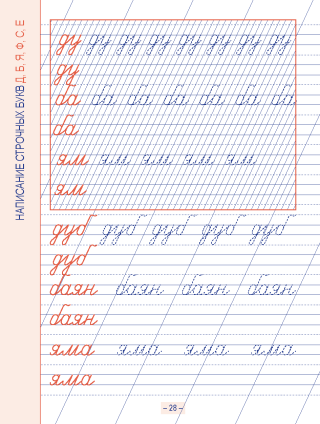 НАПИСАНИЕ СТРОЧНЫХ БУКВ Д, Б, Я, Ф, С, Е
ду ду ду ду ду ду ду ду
ду
ба ба ба ба ба ба ба
ба
ям ям ям ям ям
ям
дуб дуб дуб дуб дуб
дуб
баян баян баян баян
баян
яма яма яма яма
яма
– 28 –